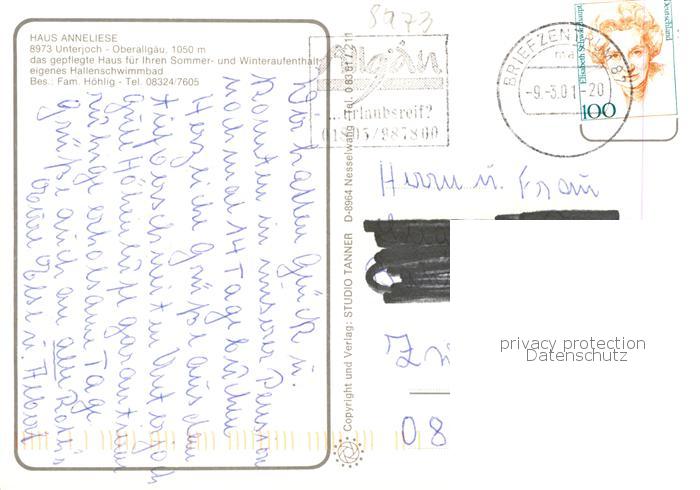 HAUS ANNELIESE
8973 Unterjoch - Oberallgäu, 1050 m
das gepflegte Haus für Ihren Sommer- und Winteraufenthalt
eigenes Hallenschwimmbad
Bes.: Fam. Höhlig - Tel. 08324/7605
8973
Allgäu
...urlaubsreif?
01805/987800
BRIEFZENTRUM 87
ma
-9.-3.01-20
Elisabeth Schwarzhaupt
Deutschland
100
Wir hatten Glück u.
konnten in unserer Pension
nochmal 14 Tage buchen
Herzliche Grüße aus dem
tiefverschneiten Unterjoch
gute Höhenluft garantiert
ruhige erholsame Tage
Grüße auch an alle
Eure Ilse u.
Copyright und Verlag: STUDIO TANNER D-8964 Nesselwang Tel. 0 83 61/7 211
Herrn u. Frau
08
privacy protection
Datenschutz